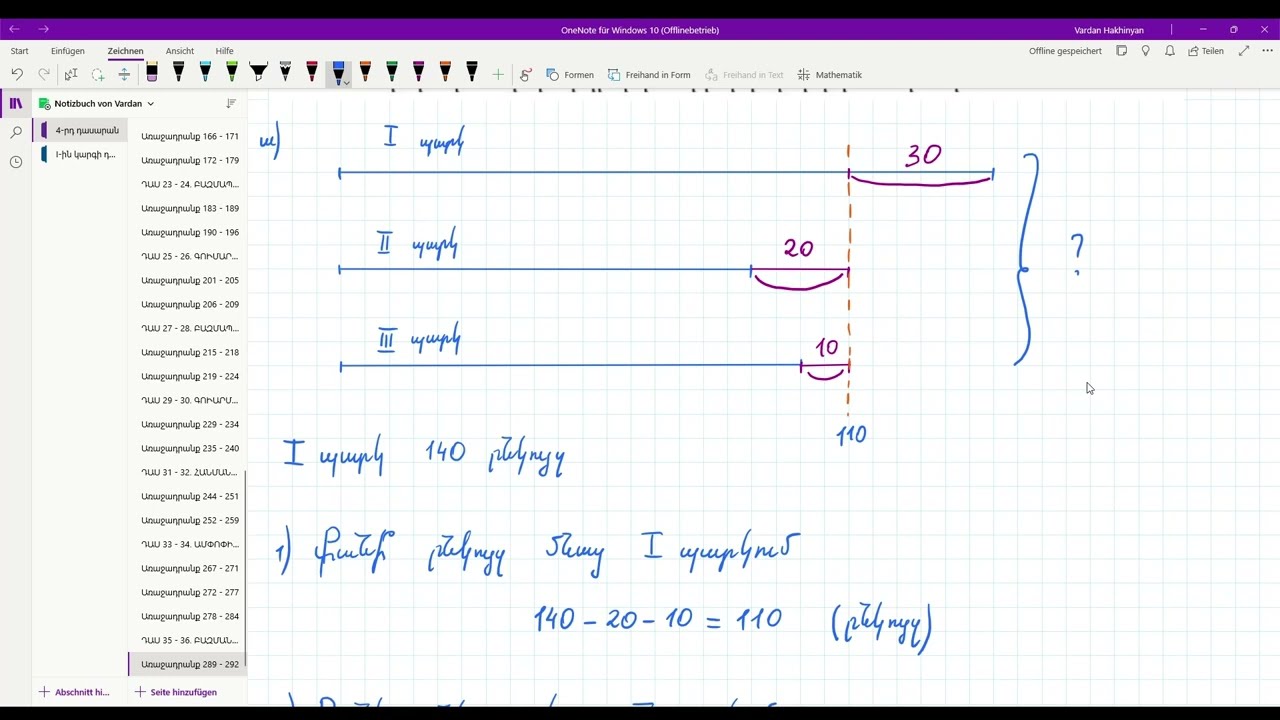 OneNote für Windows 10 (Offlinebetrieb)
Vardan Hakhinyan
Start Einfügen Zeichnen Ansicht Hilfe
Offline gespeichert Teilen
Formen Freihand in Form Freihand in Text Mathematik
Notizbuch von Vardan
4-րդ դասարան
I-ին կարգի դ...
Առաջադրանք 166 - 171
Առաջադրանք 172 - 179
ԴԱՍ 23 - 24. ԲԱԶՄԱՊ...
Առաջադրանք 183 - 189
Առաջադրանք 190 - 196
ԴԱՍ 25 - 26. ԳՈՒՄԱՐ...
Առաջադրանք 201 - 205
Առաջադրանք 206 - 209
ԴԱՍ 27 - 28. ԲԱԶՄԱՊ...
Առաջադրանք 215 - 218
Առաջադրանք 219 - 224
ԴԱՍ 29 - 30. ԳՈՒԱՐՄ...
Առաջադրանք 229 - 234
Առաջադրանք 235 - 240
ԴԱՍ 31 - 32. ՀԱՆՄԱՆ...
Առաջադրանք 244 - 251
Առաջադրանք 252 - 259
ԴԱՍ 33 - 34. ԱՄՓՈՓԻ...
Առաջադրանք 267 - 271
Առաջադրանք 272 - 277
Առաջադրանք 278 - 284
ԴԱՍ 35 - 36. ԲԱԶՄԱՆ...
Առաջադրանք 289 - 292
Abschnitt hi... Seite hinzufügen
ա) I պարկ
30
II պարկ
20
?
III պարկ
10
110
I պարկ 140 ընկույզ
1) Քանի՞ ընկույզ մնաց I պարկում
140 - 20 - 10 = 110 (ընկույզ)